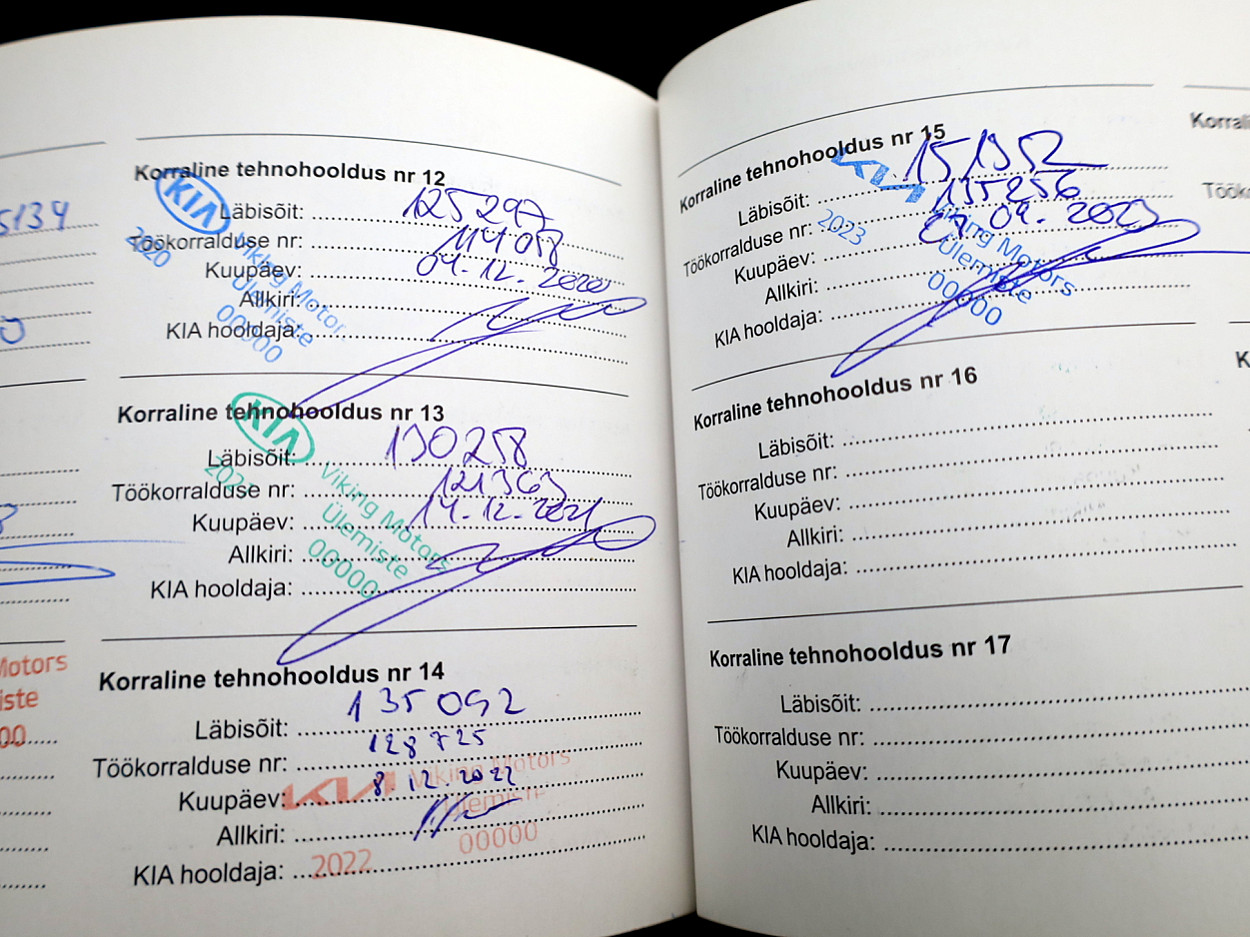 5134
Korraline tehnohooldus nr 12
KIA
Läbisõit: 125297
2020
Töökorralduse nr: 114058
Kuupäev: 04.12.2020
Allkiri:
KIA hooldaja:
Viking Motors
Ülemiste
00000
Korraline tehnohooldus nr 13
KIA
Läbisõit: 130258
Töökorralduse nr: 121363
Kuupäev: 14.12.2021
Allkiri:
KIA hooldaja:
Viking Motors
Ülemiste
00000
Motors
iste
00
Korraline tehnohooldus nr 14
Läbisõit: 135092
Töökorralduse nr: 128725
Kuupäev: 8 12. 2022
Allkiri:
KIA hooldaja:
KIA
Viking Motors
Ülemiste
00000
2022
Korraline tehnohooldus nr 15
KIA
Läbisõit: 151952
Töökorralduse nr: 135256
Kuupäev: 09.2023
Allkiri:
KIA hooldaja:
2023
Viking Motors
Ülemiste
00000
Korraline tehnohooldus nr 16
Läbisõit:
Töökorralduse nr:
Kuupäev:
Allkiri:
KIA hooldaja:
Korraline tehnohooldus nr 17
Läbisõit:
Töökorralduse nr:
Kuupäev:
Allkiri:
KIA hooldaja:
Korrali
Töök
K